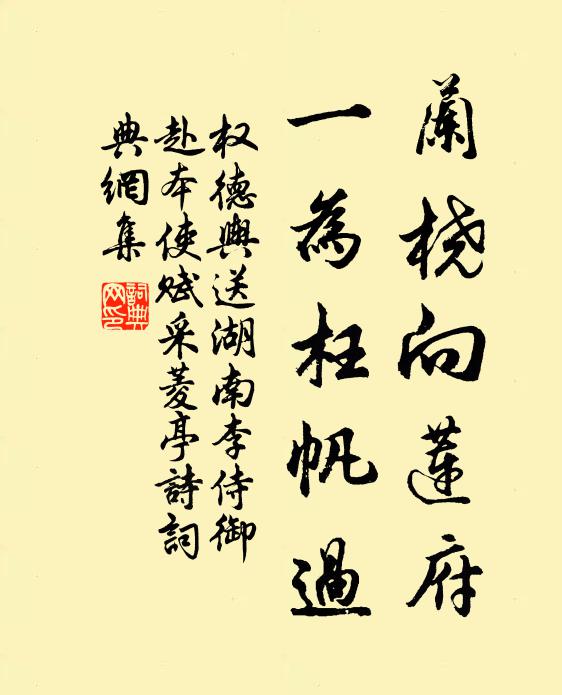 蘭桡向蓮府
一為枉帆過
权德輿送湖南李侍御
赴本使赋采菱亭詩詞
典網集
詞典網印